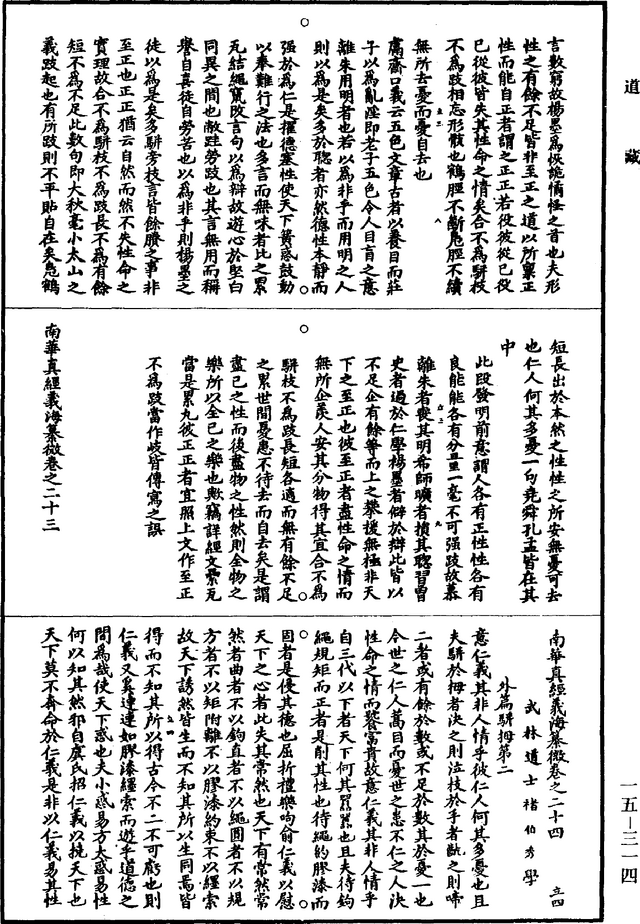 道藏
言數窮故楊墨為恢詭憰怪之首也夫形
性之有餘不足皆非至正之道以所稟正
性而能自正者謂之正正若役彼從已役
已從彼皆失其性命之情矣合不為駢枝
不為跂相忘形骸也鶴脛不斷鳧脛不續
無所去憂而憂自去也
鬳齋口義云五色文章古者以養目而莊
子以為亂淫即老子五色令人目盲之意
離朱用明者也若以為非乎而用明之人
則以為是矣多於聰者亦然德性本靜而
強於為仁是擢德塞性使天下簧惑鼓動
以奉難行之法也多言而無味者比之累
瓦結繩竄改言句以為辯故遊心於堅白
同異之間也敝跬勞跂也其言無用而稱
譽自喜徒自勞苦也以為非乎則楊墨之
徒以為是矣多駢旁枝言皆餘賸之事非
至正也正正猶云自然而然不失性命之
實理故合不為駢枝不為跂長不為有餘
短不為不足此數句即大秋毫小太山之
義跂起也有所跂則不平貼自在矣鳧鶴
短長出於本然之性性之所安無憂可去
也仁人何其多憂一句堯舜孔孟皆在其
中
此段發明前意謂人各有正性性各有
良能能各有分量一毫不可強跂故慕
離朱者喪其明希師曠者損其聰習曾
史者過於仁學楊墨者僻於辯此皆以
不足企有餘等而上之攀援無極非天
下之至正也彼至正者盡性命之情而
無所企羨人安其分物得其宜合不為
駢枝不為跂長短各適而無有餘不足
之累世間憂患不待去而自去矣是謂
盡已之性而後盡物之性然則全物之
樂所以全已之樂也歟竊詳經文纍瓦
當是累丸彼正正者宜照上文作至正
不為跂當作歧皆傳寫之誤
南華真經義海纂微卷之二十三
南華真經義海纂微卷之二十四 立四
武林道士褚伯秀學
外篇駢拇第二
意仁義其非人情乎彼仁人何其多憂也且
夫駢於拇者決之則泣枝於手者齕之則啼
二者或有餘於數或不足於數其於憂一也
今世之仁人蒿目而憂世之患不仁之人決
性命之情而饕富貴故意仁義其非人情乎
自三代以下者天下何其囂囂也且夫待鉤
繩規矩而正者是削其性也待繩約膠漆而
固者是侵其德也屈折禮樂呴俞仁義以慰
天下之心者此失其常然也天下有常然常
然者曲者不以鉤直者不以繩圓者不以規
方者不以矩附離不以膠漆約束不以纆索
故天下誘然皆生而不知其所以生同焉皆
得而不知其所以得古今不二不可虧也則
仁義又奚連連如膠漆纆索而遊乎道德之
間為哉使天下惑也夫小惑易方大惑易性
何以知其然邪自虞氏招仁義以撓天下也
天下莫不奔命於仁義是非以仁義易其性
一五—三一四